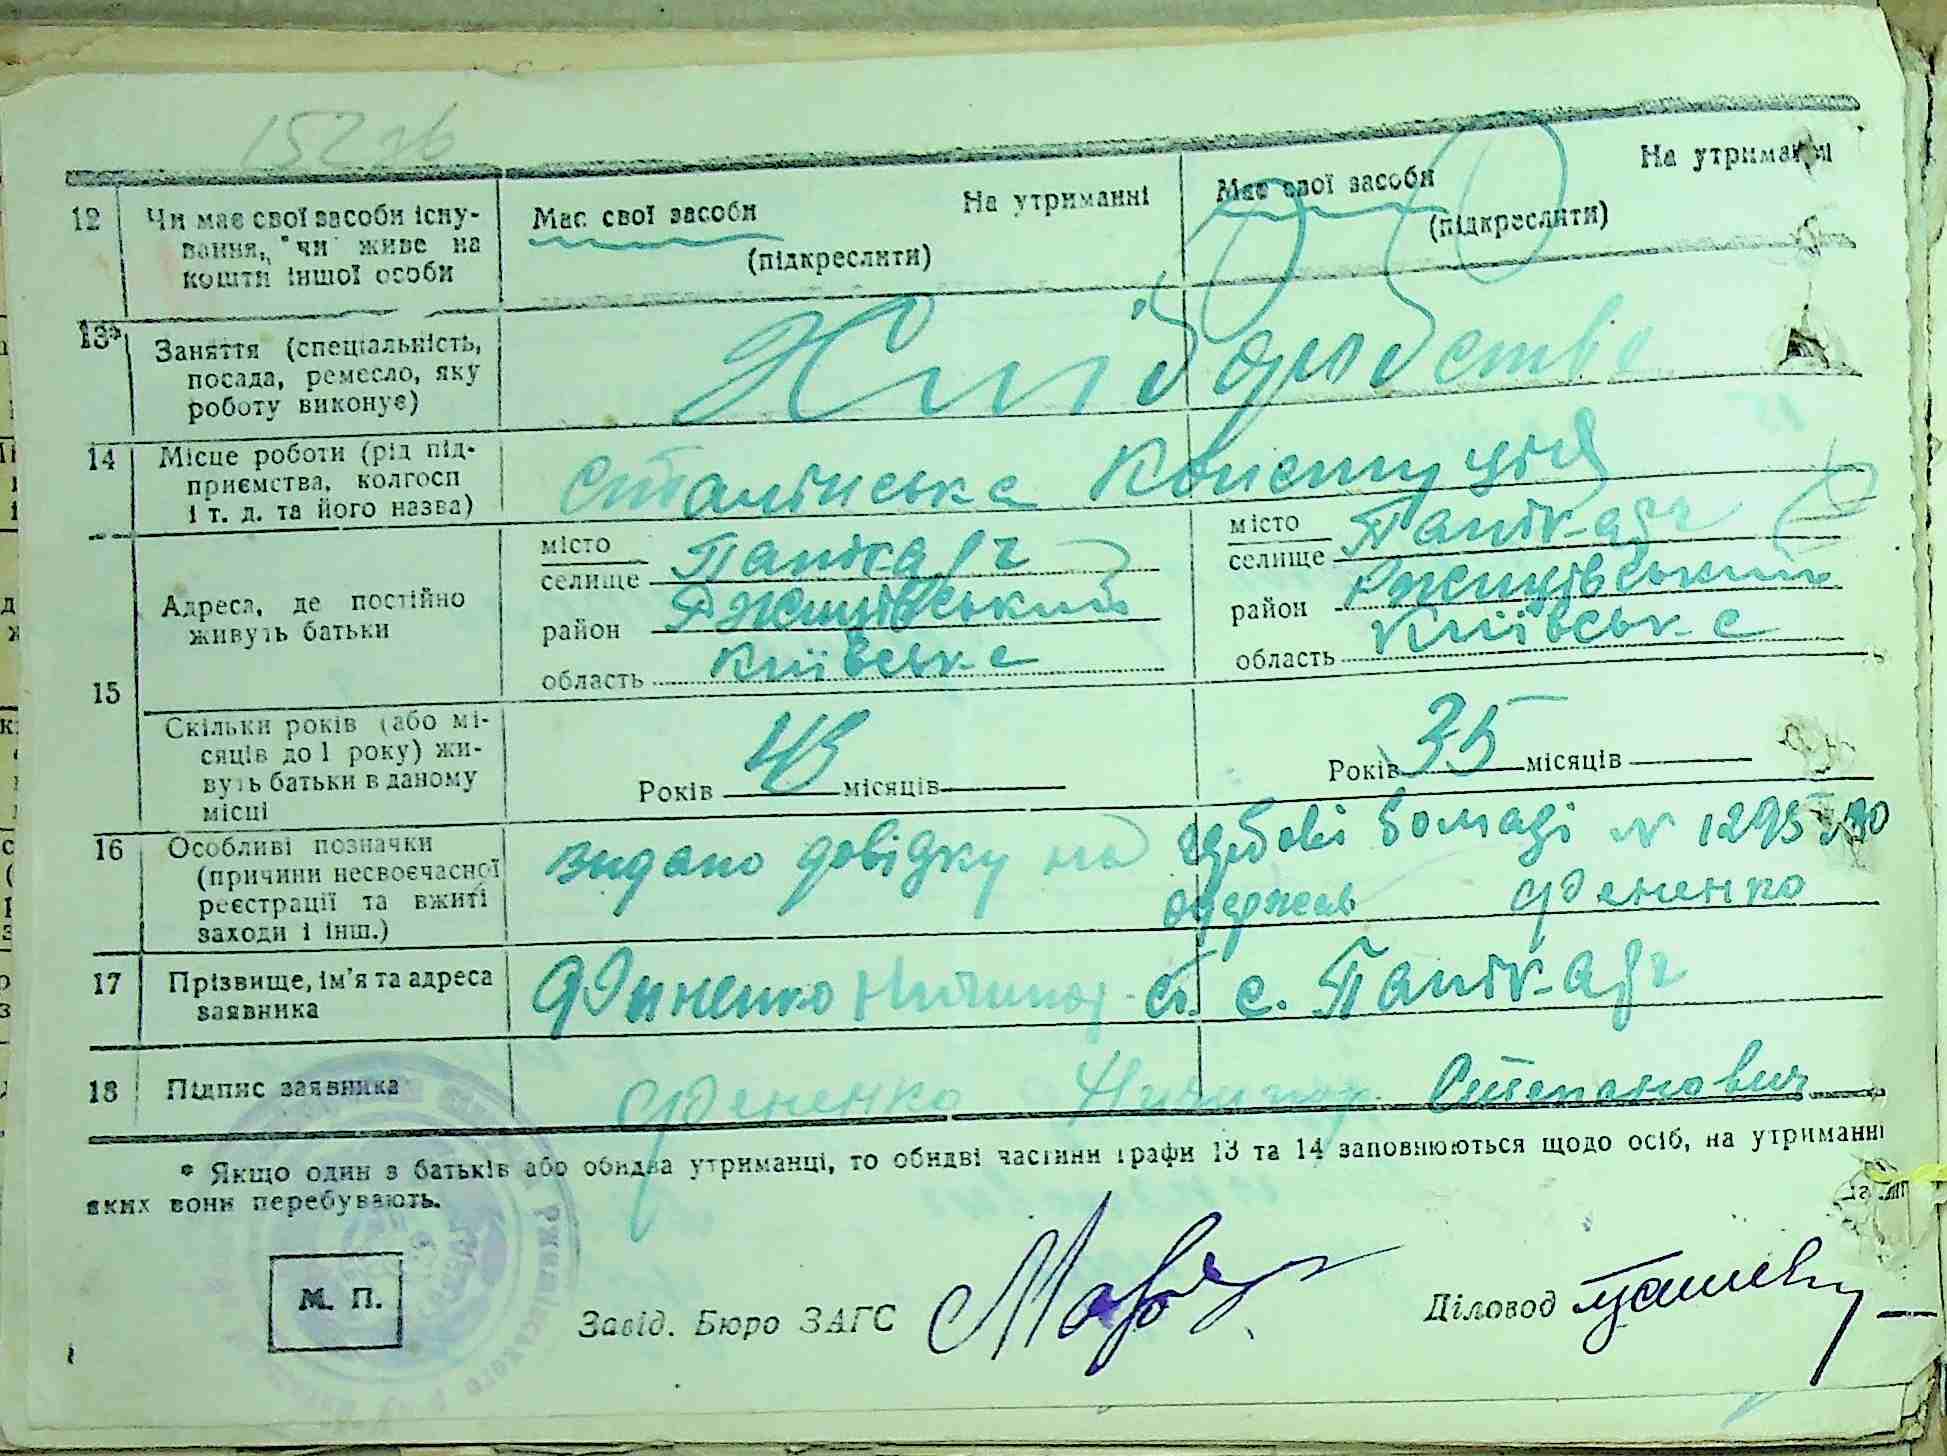 152 зв
12 Чи має свої засоби існу- Має свої засоби На утриманні Має свої засоби На утриманні
вання, чи живе на (підкреслити) (підкреслити)
кошти іншої особи
13* Заняття (спеціальність, Хліборобство
посада, ремесло, яку
роботу виконує)
14 Місце роботи (рід під- Сталінська Констітуція
приємства, колгосп
і т. д. та його назва)
15 Адреса, де постійно
живуть батьки
місто Панікарч місто Панікарч
селище селище
район Ржищівський район Ржищівський
область Київська область Київська
Скільки років (або мі-
сяців до 1 року) жи-
вуть батьки в даному
місці
Років 43 місяців Років 35 місяців
16 Особливі позначки видано довідку на
(причини несвоєчасної одержав Фененко
реєстрації та вжиті
заходи і інш.)
17 Прізвище, ім'я та адреса Фененко Ничипор Ст. с. Панікарч
заявника
18 Підпис заявника Фененко Ничипор Степанович
* Якщо один з батьків або обидва утриманці, то обидві частини графи 13 та 14 заповнюються щодо осіб, на утриманні
яких вони перебувають.
М. П.
Завід. Бюро ЗАГС Діловод